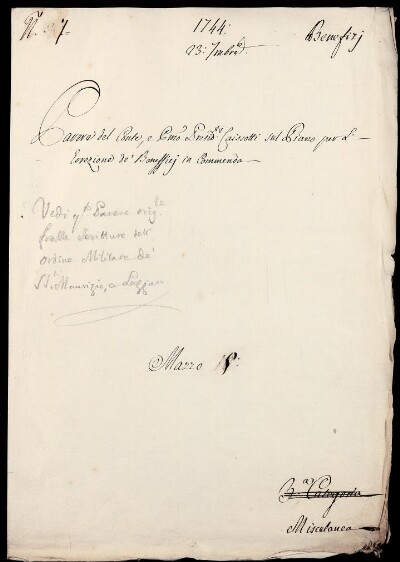 N.° 7
1744:
23: 7mbre
Beneficj
Parere del Conte, e Primo Presid.te Caissotti sul Piano per l'
Erezione de' Beneficj in Commenda
Vedi q.to Parere orig.le
fralle Scritture dell'
ordine Militare de'
S.ti Maurizio, e Lazzaro
Mazzo
3.a Categoria
Miscelanea